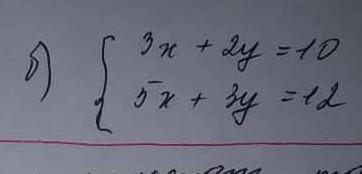 б) { 3x + 2y = 10
5x + 3y = 12